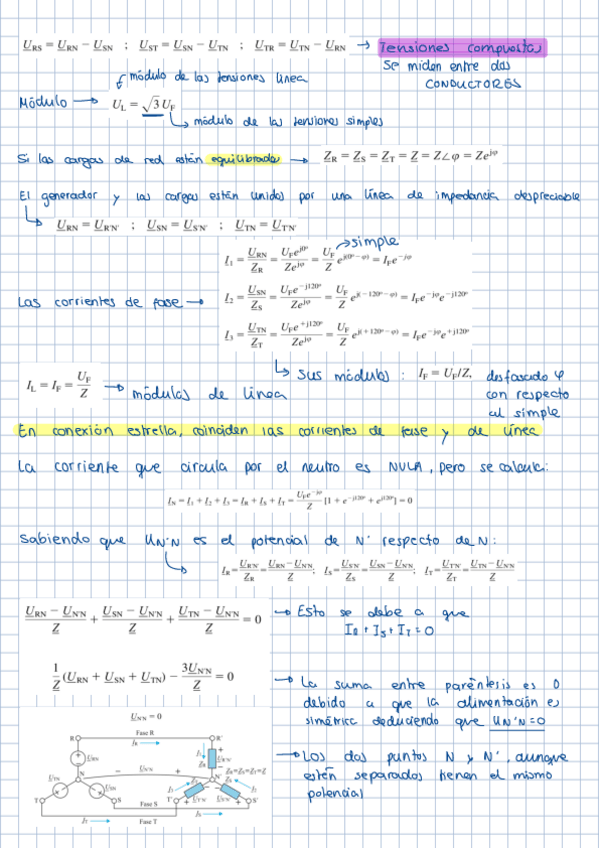 U_RS = U_RN − U_SN ; U_ST = U_SN − U_TN ; U_TR = U_TN − U_RN → Tensiones compuestas
Se miden entre dos
CONDUCTORES
módulo de las tensiones línea
Módulo → U_L = √3 U_F
módulo de las tensiones simples
Si las cargas de red están equilibradas → Z_R = Z_S = Z_T = Z = Z∠φ = Ze^jφ
El generador y las cargas están unidos por una línea de impedancia despreciable
U_RN = U_R'N' ; U_SN = U_S'N' ; U_TN = U_T'N'
simple
I_1 = U_RN/Z_R = U_F e^j0°/Ze^jφ = U_F/Z e^j(0°−φ) = I_F e^−jφ
Las corrientes de fase → I_2 = U_SN/Z_S = U_F e^−j120°/Ze^jφ = U_F/Z e^j(−120°−φ) = I_F e^−jφ e^−j120°
I_3 = U_TN/Z_T = U_F e^+j120°/Ze^jφ = U_F/Z e^j(+120°−φ) = I_F e^−jφ e^+j120°
Sus módulos : I_F = U_F/Z, desfasado φ
con respecto
al simple
I_L = I_F = U_F/Z → módulos de línea
En conexión estrella, coinciden las corrientes de fase y de línea
La corriente que circula por el neutro es NULA, pero se calcula:
I_N = I_1 + I_2 + I_3 = I_R + I_S + I_T = U_F e^−jφ/Z [1 + e^−j120° + e^j120°] = 0
Sabiendo que U_N'N es el potencial de N' respecto de N:
I_R = U_RN'/Z_R = U_RN − U_N'N/Z ; I_S = U_SN'/Z_S = U_SN − U_N'N/Z ; I_T = U_TN'/Z_T = U_TN − U_N'N/Z
U_RN − U_N'N/Z + U_SN − U_N'N/Z + U_TN − U_N'N/Z = 0 → Esto se debe a que
I_R + I_S + I_T = 0
1/Z (U_RN + U_SN + U_TN) − 3U_N'N/Z = 0
→ La suma entre paréntesis es 0
debido a que la alimentación es
simétrica deduciendo que U_N'N = 0
U_N'N = 0
Fase R
R
R'
I_R
→ Los dos puntos N y N', aunque
estén separados tienen el mismo
potencial
U_RN
N
U_N'N
N'
Z_R=Z_S=Z_T=Z
T
S
Fase S
T'
S'
Fase T